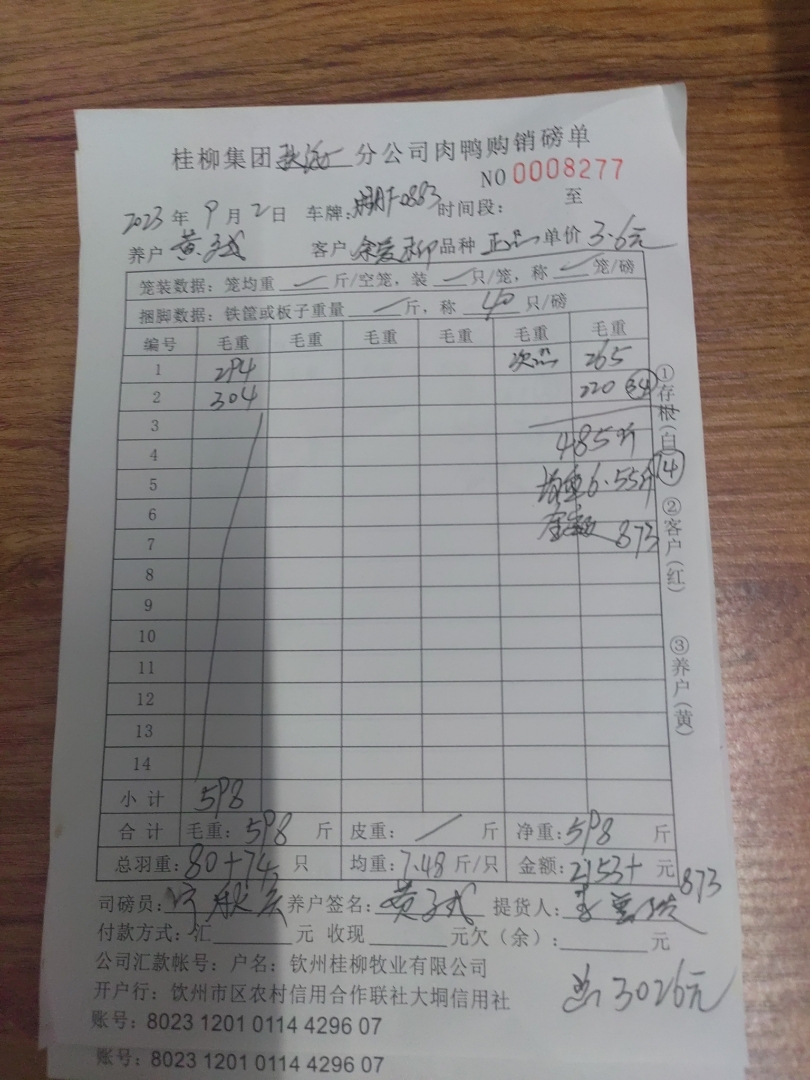 桂柳集团 分公司肉鸭购销磅单
NO 0008277
2023年9月2日 车牌: 时间段: 至
养户 黄 客户 余爱 品种 正品 单价 3.6元
笼装数据：笼均重 / 斤/空笼，装 / 只/笼，称 / 笼/磅
捆脚数据：铁筐或板子重量 / 斤，称 40 只/磅
编号 毛重 毛重 毛重 毛重 毛重 毛重
1 294 次品 265
2 304 220 34
3
4 485斤
5 均重6.55斤
6 金额
7 873
8
9
10
11
12
13
14
小计 598
合计 毛重：598 斤 皮重： / 斤 净重：598 斤
总羽重：80+74 只 均重：7.48 斤/只 金额：2153+ 元
873
司磅员： 养户签名：黄 提货人：
付款方式：汇 元 收现 元欠（余）： 元
公司汇款帐号：户名：钦州桂柳牧业有限公司
开户行：钦州市区农村信用合作联社大垌信用社
3026元
账号：8023 1201 0114 4296 07
账号：8023 1201 0114 4296 07
①存根（白）
④
②客户（红）
③养户（黄）